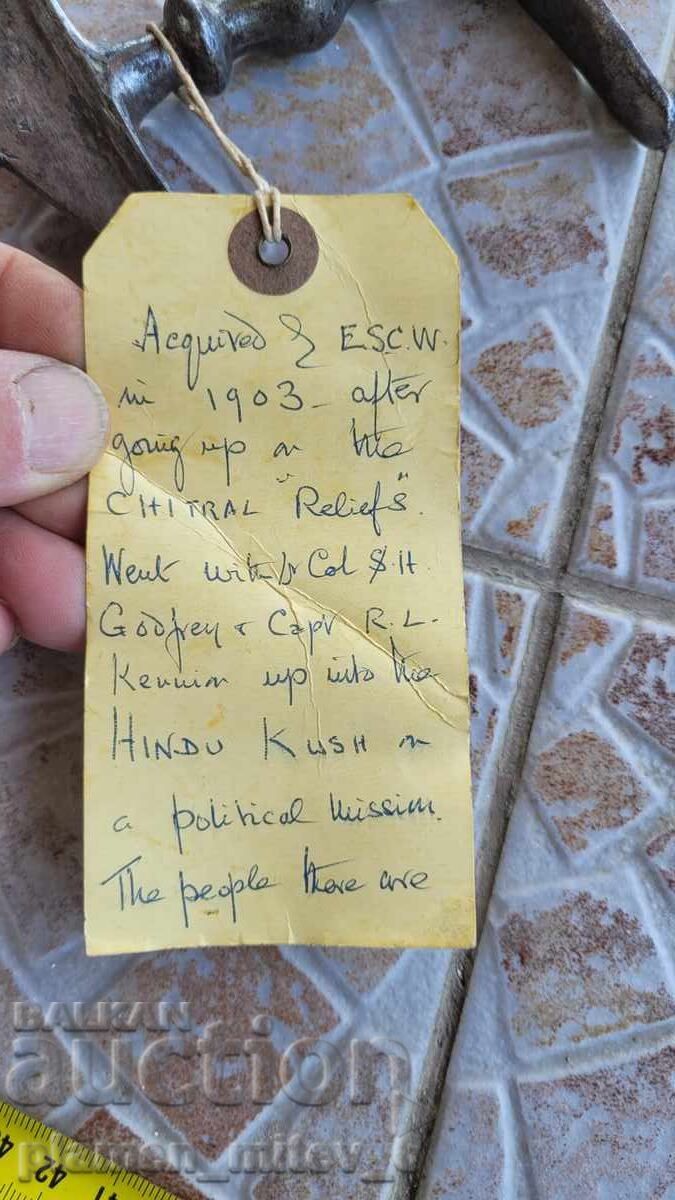 Acquired by E.S.C.W.
in 1903 - after
going up on the
CHITRAL "Reliefs".
Went with Lt Col S.H.
Godfrey & Capt R.L.
Kennion up into the
HINDU KUSH on
a political mission.
The people there are
BALKAN
auction
42 41
plamen_mitev_6